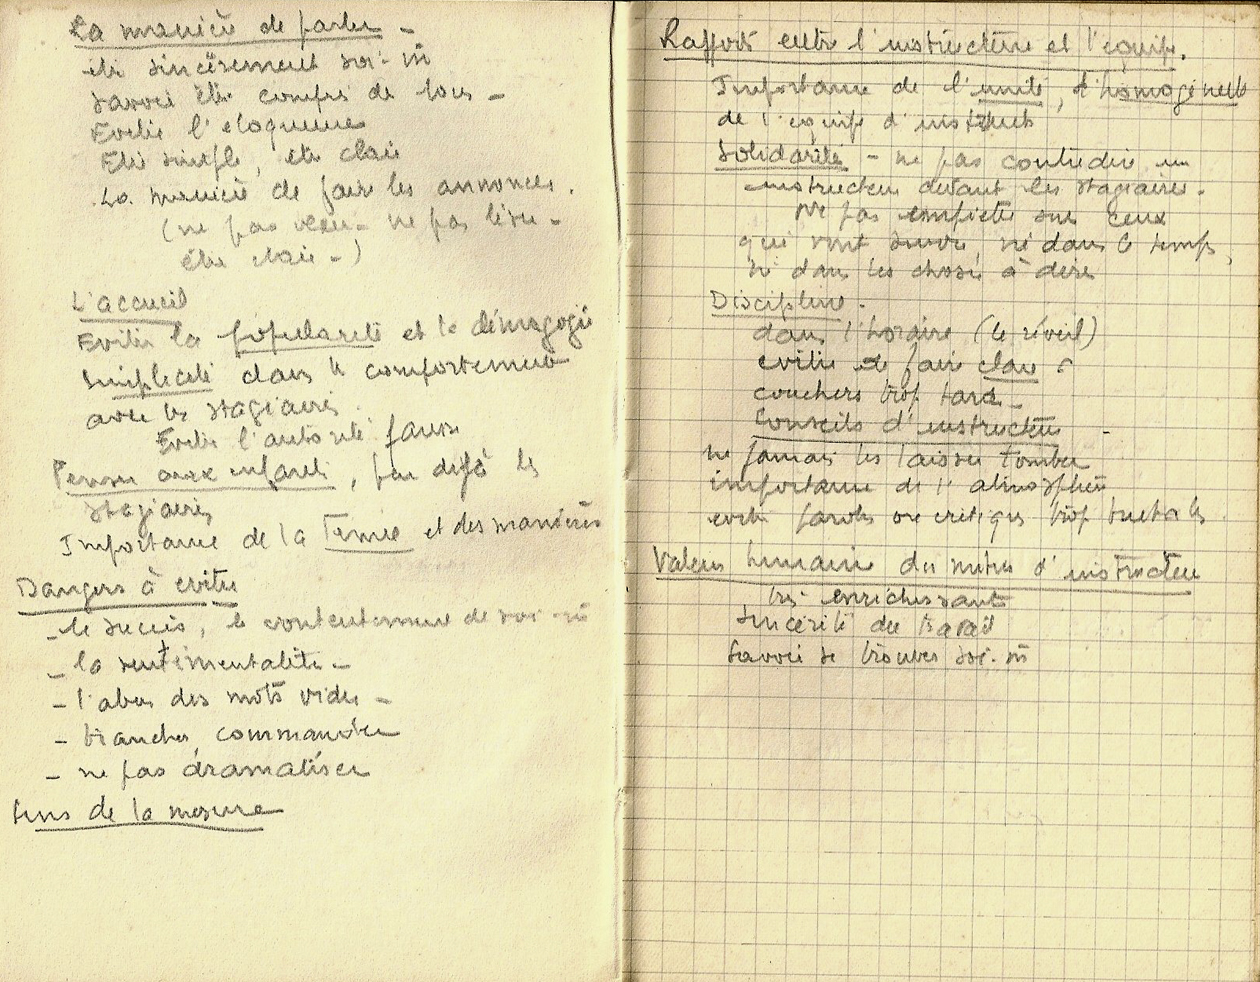 La manière de parler -
être sincèrement soi-m̂
savoir être compris de tous -
Eviter l'éloquence
Etre simple, être clair
La manière de faire les annonces.
(ne pas ne pas lire -
être clair -)
L'accueil
Eviter la popularité et la démagogie
Simplicité dans le comportement
avec les stagiaires
Eviter l'autorité fausse
Penser aux enfants, par delà les
stagiaires
Importance de la Tenue et des manières
Dangers à eviter
- le succès, le contentement de soi-m̂
- la sentimentalité -
- l'abus des mots vides -
- trancher, commander
- ne pas dramatiser
Sens de la mesure
Rapports entre l'instructeur et l'équipe.
Importance de l'unité, d'homogénéité
de l'équipe d'instruct
Solidarité - ne pas contredire un
instructeur devant les stagiaires.
Ne pas empiéter sur ceux
qui vont suivre ni dans le temps,
ni dans les choses à dire
Discipline.
dans l'horaire (le réveil)
eviter de faire clan
couchers trop tard -
Conseils d'instructeur -
ne jamais les laisser tomber
importance de l'atmosphère
eviter paroles ou critiques trop brutales
Valeur humaine du métier d'instructeur
très enrichissant
sincérité du travail
Savoir se trouver soi-m̂